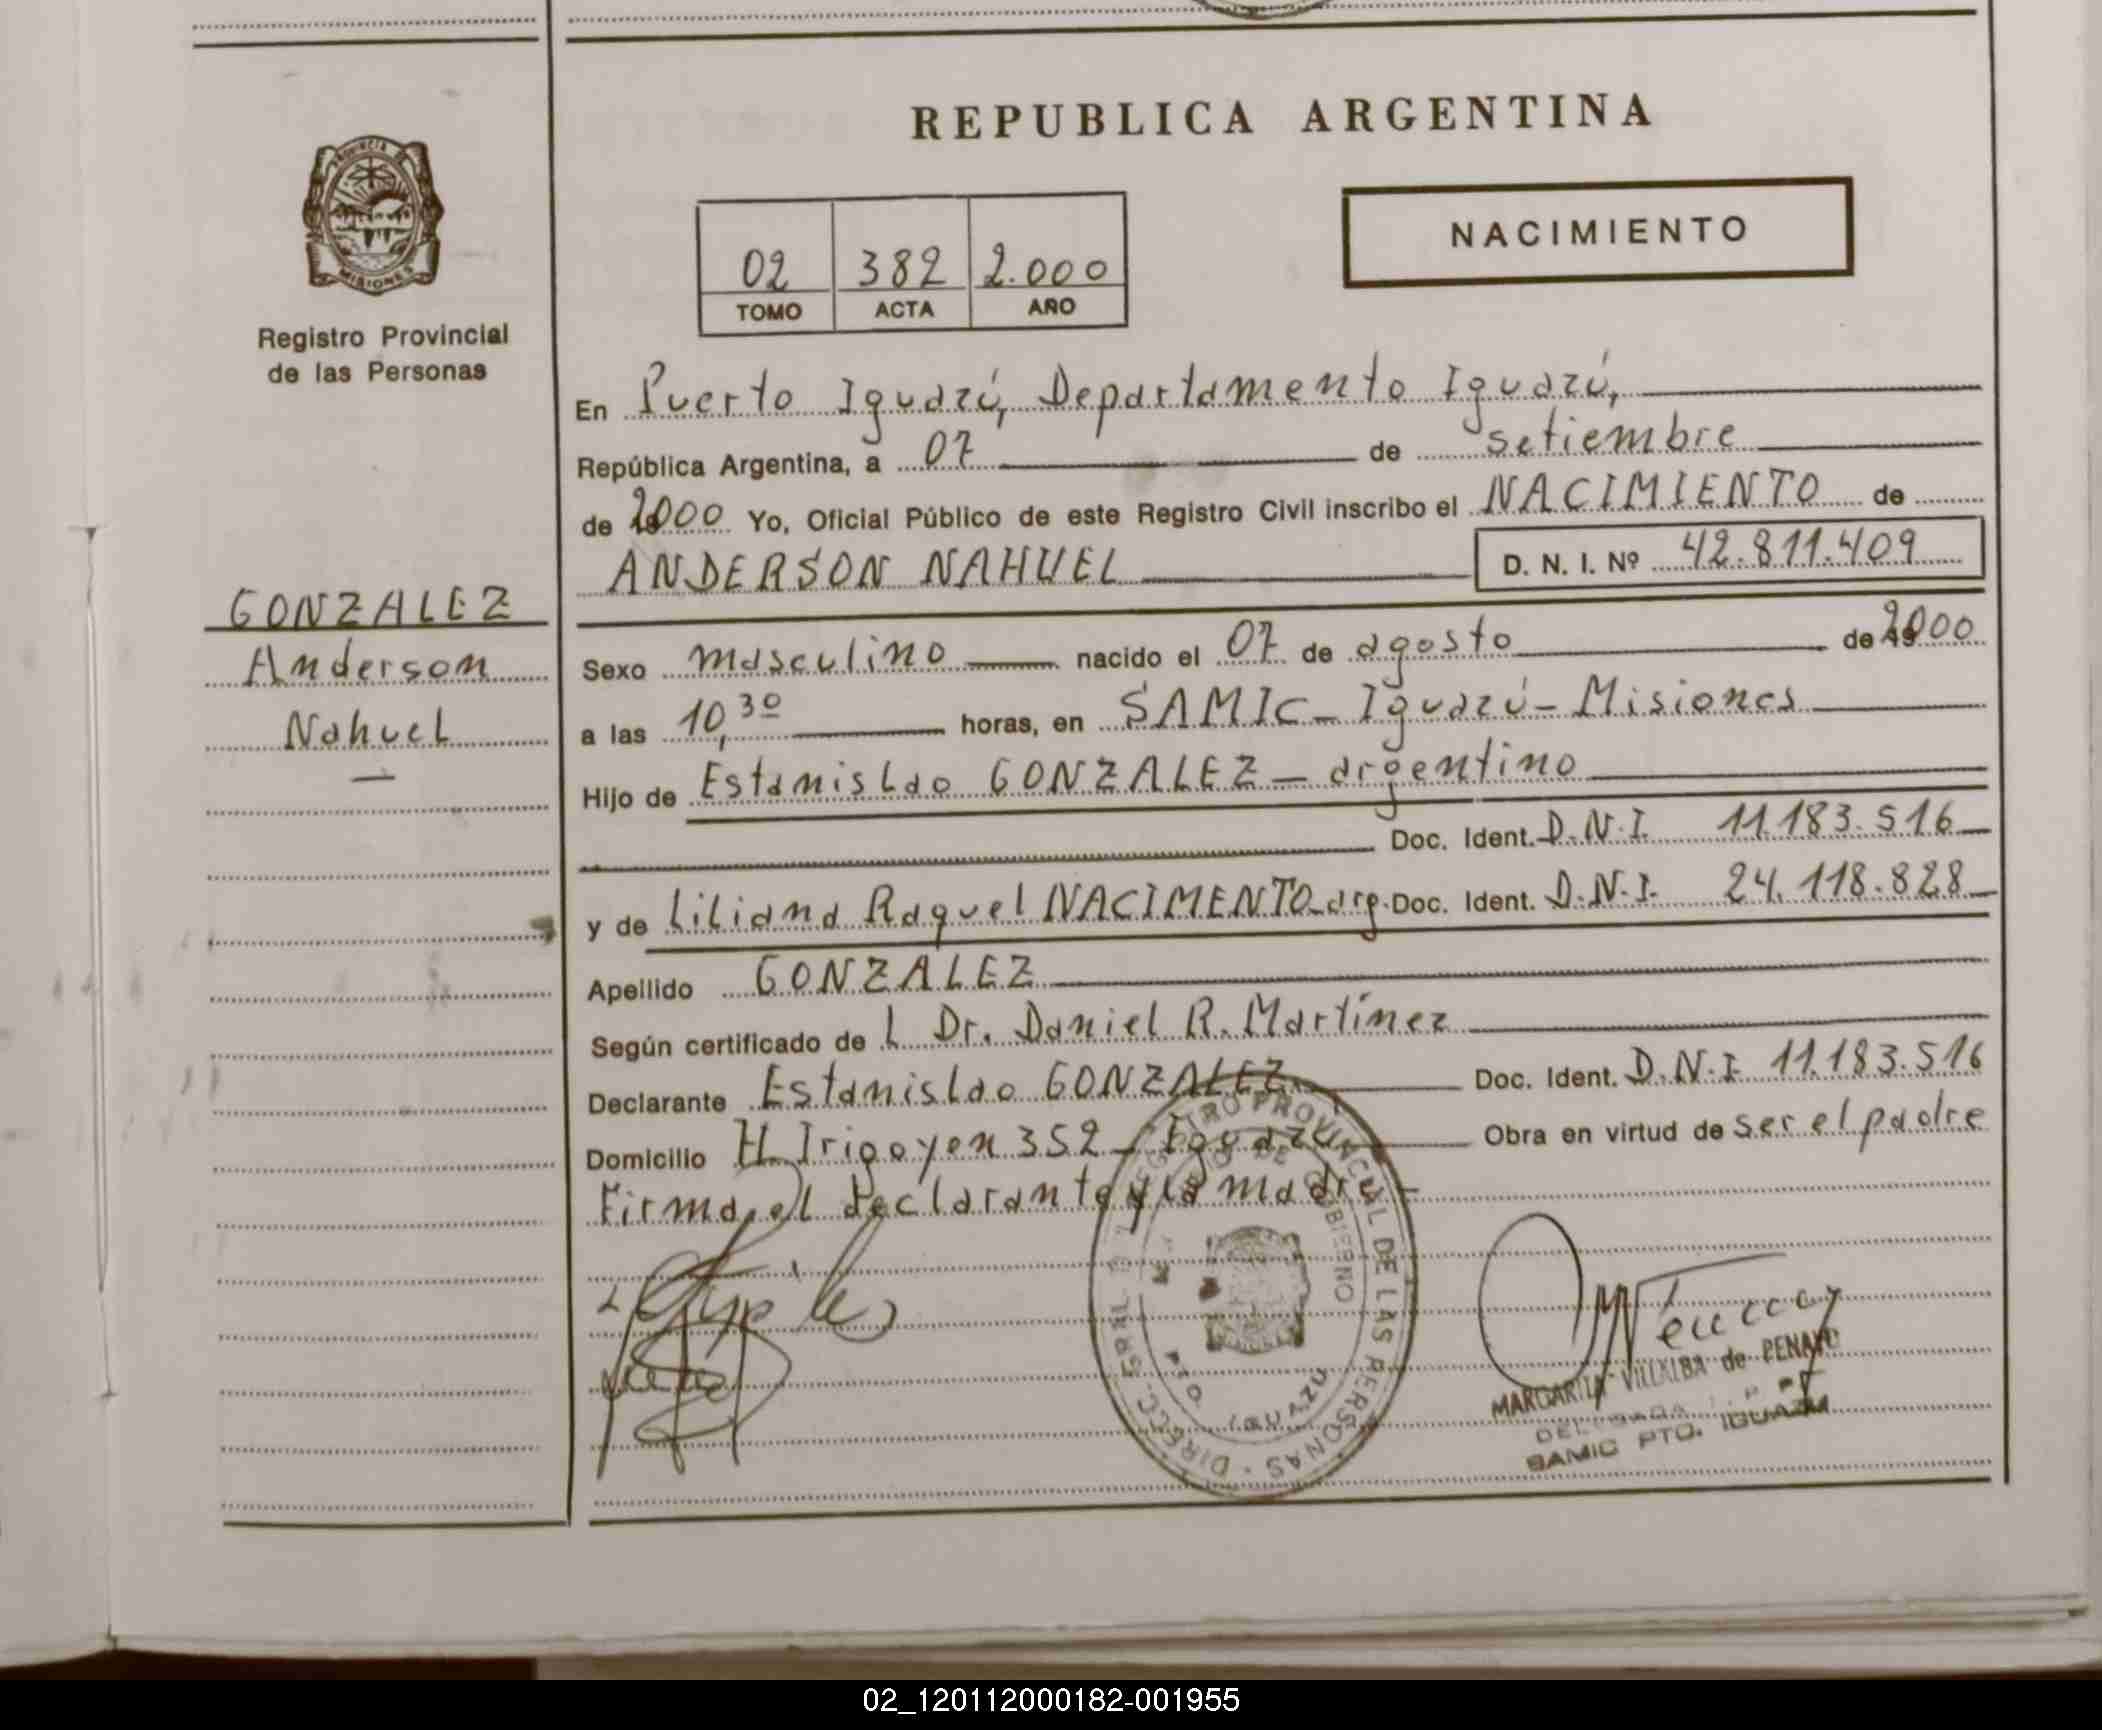 REPUBLICA ARGENTINA
PROVINCIA DE MISIONES
Registro Provincial
de las Personas
GONZALEZ
Anderson
Nahuel
02 382 2.000
TOMO ACTA AÑO
NACIMIENTO
En Puerto Iguazú, Departamento Iguazú,
República Argentina, a 07 de setiembre
de 2000 Yo, Oficial Público de este Registro Civil inscribo el NACIMIENTO de
ANDERSON NAHUEL D. N. I. Nº 42.811.409
Sexo masculino nacido el 07 de agosto de 2000
a las 10,30 horas, en SAMIC - Iguazú - Misiones
Hijo de Estanislao GONZALEZ - argentino
Doc. Ident. D.N.I. 11.183.516
y de Liliana Raquel NACIMENTO - arg. Doc. Ident. D.N.I. 24.118.828
Apellido GONZALEZ
Según certificado de L Dr. Daniel R. Martínez
Declarante Estanislao GONZALEZ Doc. Ident. D.N.I 11.183.516
Domicilio H. Irigoyen 352 - Iguazú Obra en virtud de ser el padre
Firma, el declarante y la madre -
REGISTRO PROVINCIAL DE LAS PERSONAS
DE GOBIERNO
PTO. IGUAZU
MARGARITA VILLALBA de PENAYO
DELEGADA
SAMIC PTO. IGUAZU
02_120112000182-001955